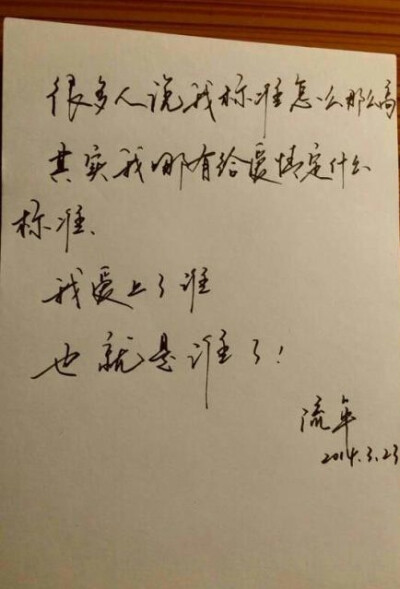 很多人说我标准怎么那么高
其实我哪有给爱情定什么
标准、
我爱上了谁
也就是谁了!
流年
2014.3.23